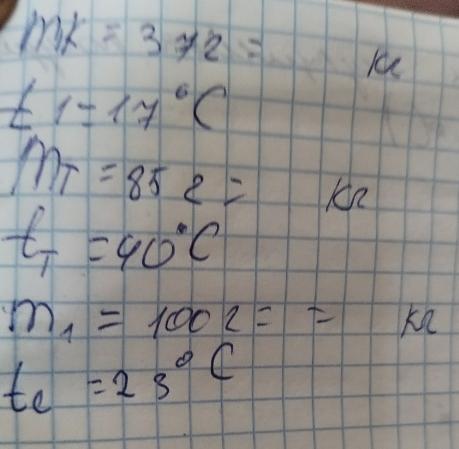 mк = 37г = кг
t1 = 17°C
mт = 85г = кг
tт = 40°C
m₁ = 100г = = кг
tс = 23°C